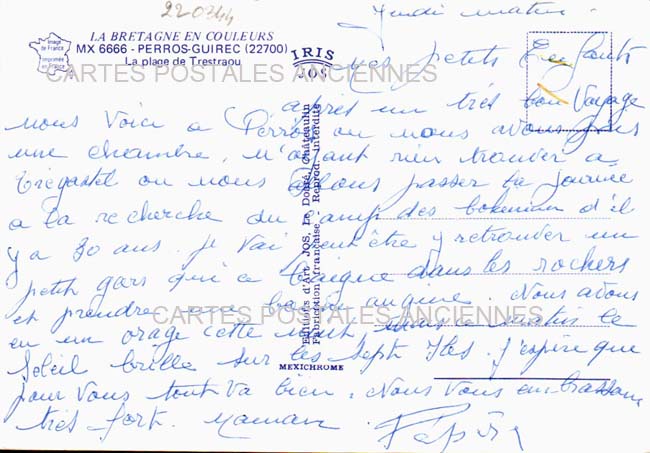 220344
Jeudi matin
Image de France
Imprimée en France
LA BRETAGNE EN COULEURS
MX 6666 - PERROS-GUIREC (22700)
La plage de Trestraou
IRIS
JOS
mes petits Enfants
CARTES POSTALES ANCIENNES
après un très bon Voyage
nous voici a Perros ou nous avons pris
une chambre, n'ayant rien trouver a
Tregastel ou nous allons passer la journée
a la recherche du Camp des bohemien d'il
y a 30 ans. je vai peut être y retrouver un
petit gars qui se baigne dans les rochers
et prendre une angine. Nous avons
CARTES POSTALES ANCIENNES
eu un orage cette nuit, mais ce matin le
Soleil brille sur les Sept Iles. j'espère que
pour vous tout va bien. Nous vous embrassons
très fort. Maman Papa
Editions d'Art JOS, Le Doaré, Châteaulin
Fabrication française - Reprod. interdite
MEXICHROME